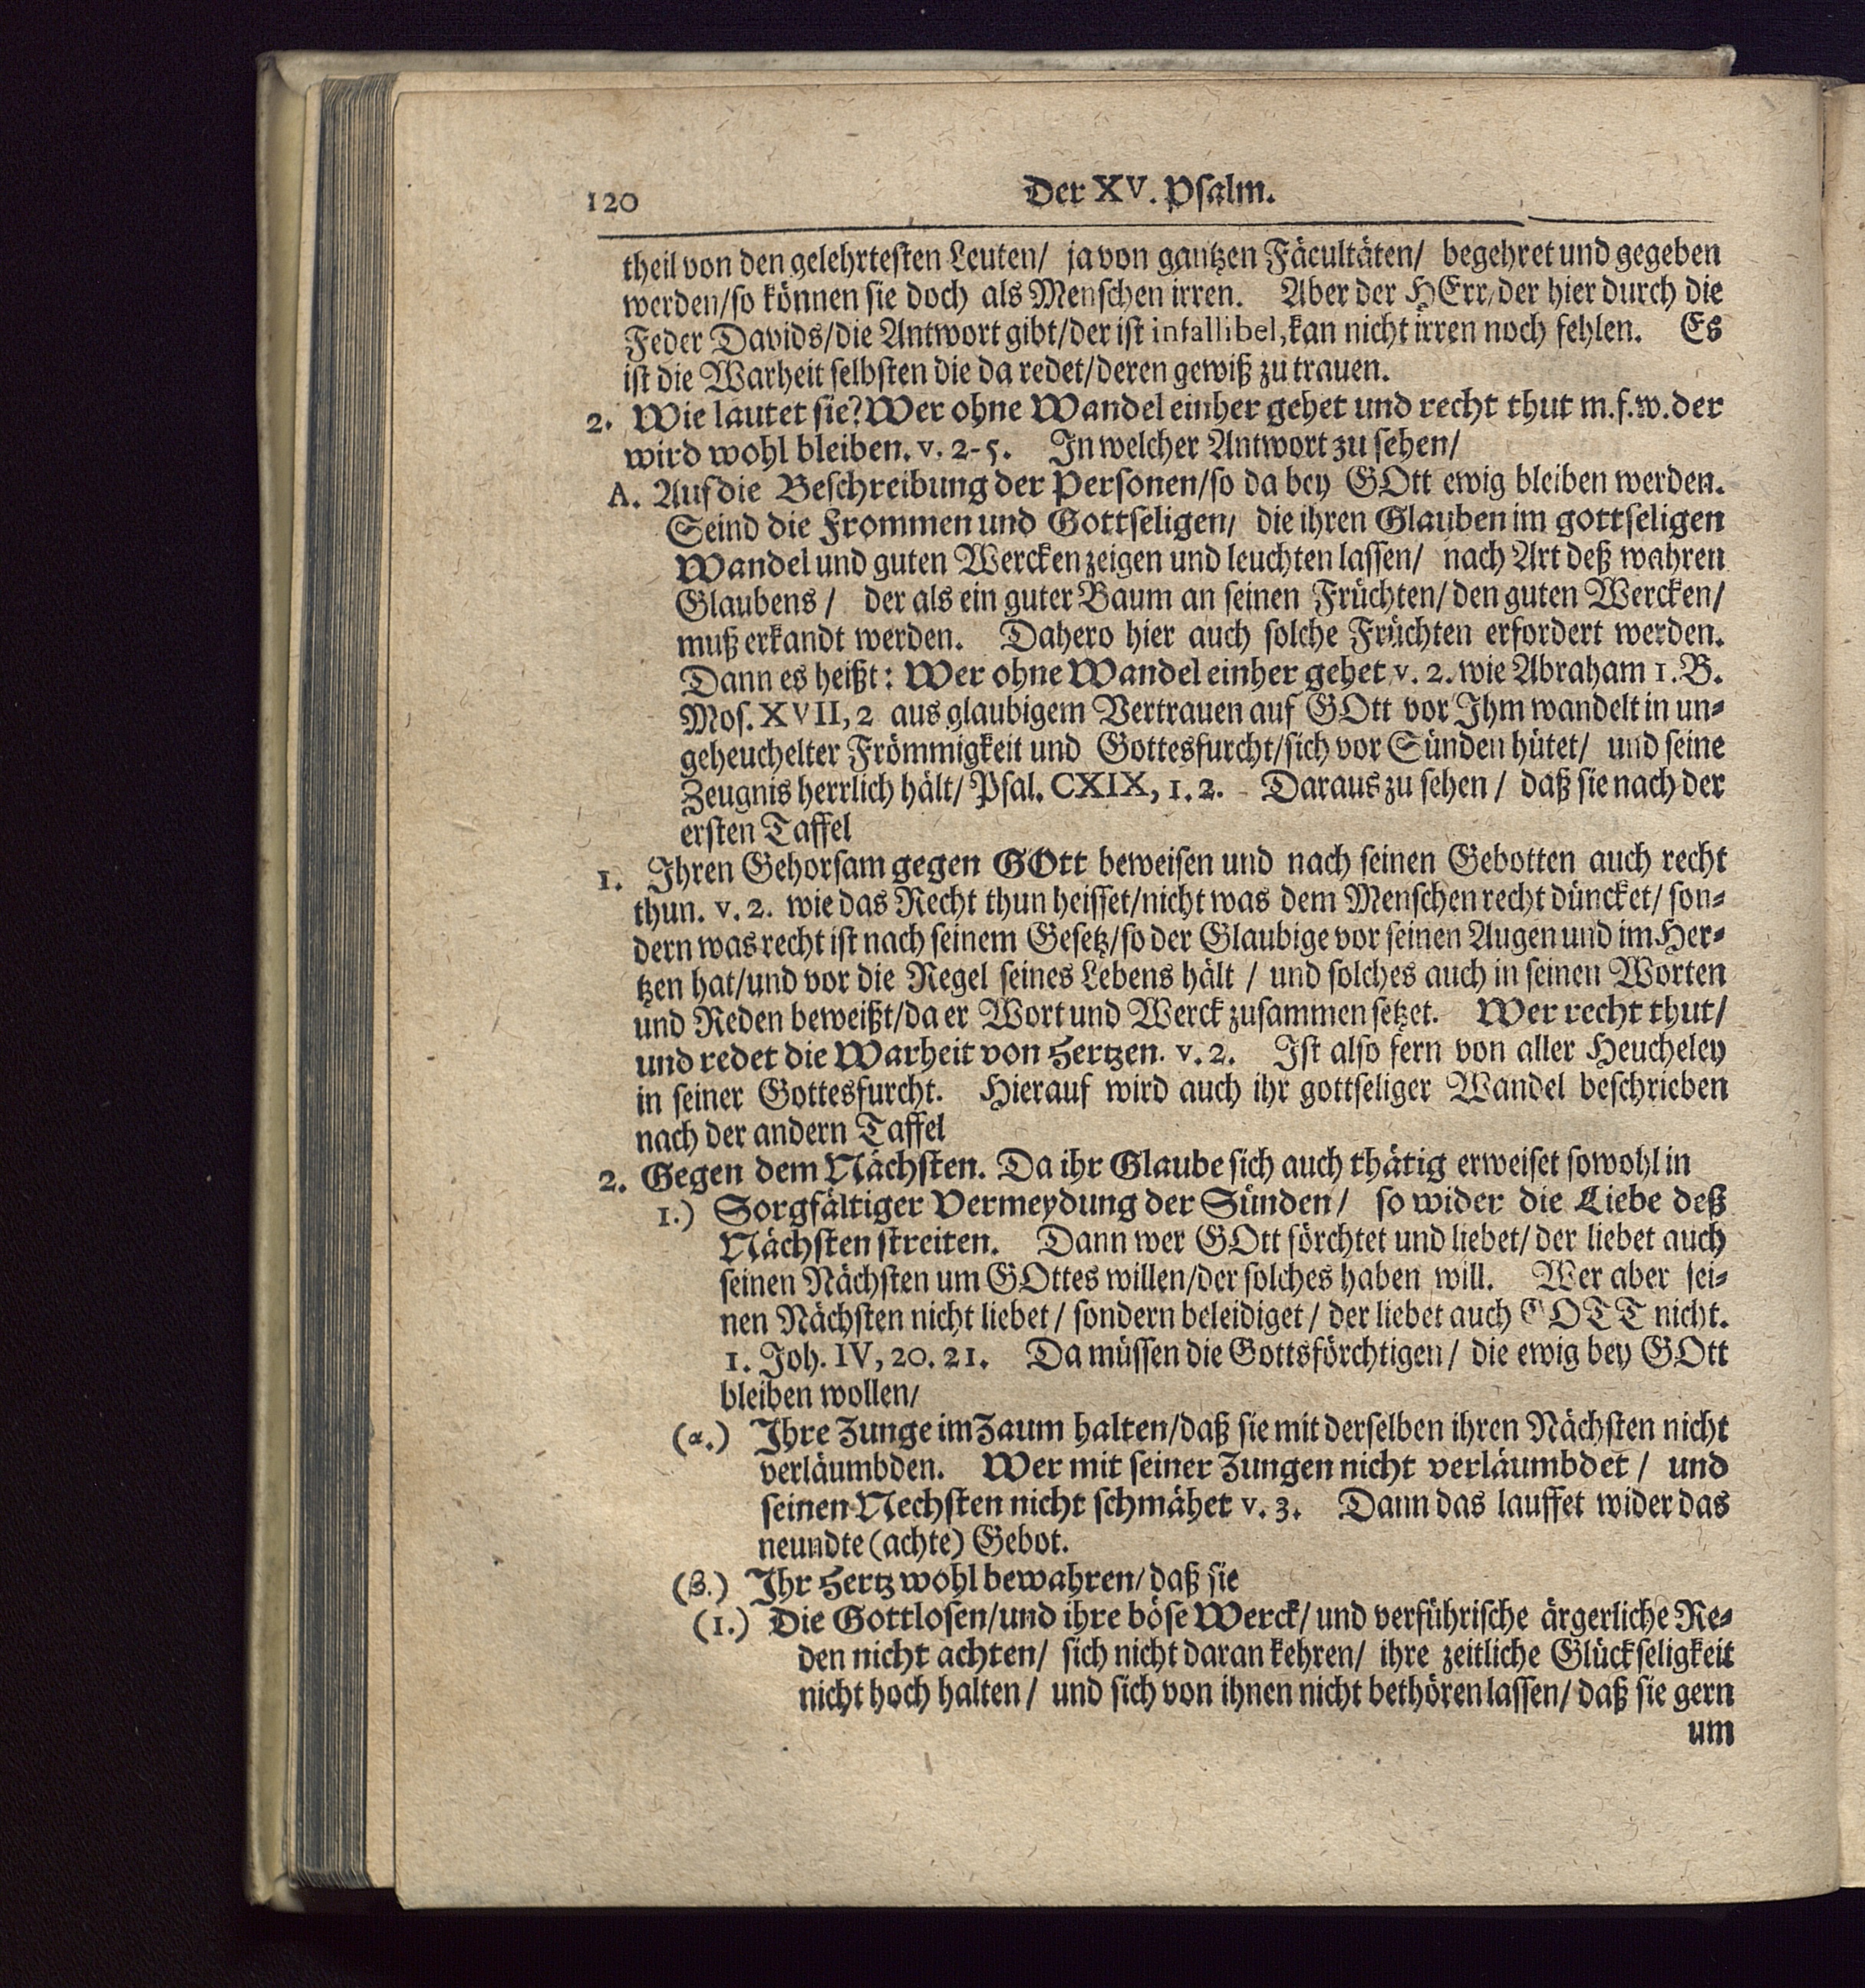 120
Der XV. Psalm.
theil von den gelehrtesten Leuten/ ja von gantzen Fäcultäten/ begehret und gegeben
werden/so können sie doch als Menschen irren. Aber der HErr/der hier durch die
Feder Davids/die Antwort gibt/der ist infallibel, kan nicht irren noch fehlen. Es
ist die Warheit selbsten die da redet/deren gewiß zu trauen.
2. Wie lautet sie? Wer ohne Wandel einher gehet und recht thut m.f.w. der
wird wohl bleiben. v. 2-5. In welcher Antwort zu sehen/
A. Auf die Beschreibung der Personen/so da bey GOtt ewig bleiben werden.
Seind die Frommen und Gottseligen/ die ihren Glauben im gottseligen
Wandel und guten Wercken zeigen und leuchten lassen/ nach Art deß wahren
Glaubens / der als ein guter Baum an seinen Früchten/ den guten Wercken/
muß erkandt werden. Dahero hier auch solche Früchten erfordert werden.
Dann es heißt: Wer ohne Wandel einher gehet v. 2. wie Abraham 1. B.
Mos. XVII, 2 aus glaubigem Vertrauen auf GOtt vor Ihm wandelt in un-
geheuchelter Frömmigkeit und Gottesfurcht/sich vor Sünden hütet/ und seine
Zeugnis herrlich hält/ Psal. CXIX, 1. 2. Daraus zu sehen / daß sie nach der
ersten Taffel
1. Ihren Gehorsam gegen GOtt beweisen und nach seinen Gebotten auch recht
thun. v. 2. wie das Recht thun heisset/nicht was dem Menschen recht düncket/ son-
dern was recht ist nach seinem Gesetz/so der Glaubige vor seinen Augen und im Her-
tzen hat/und vor die Regel seines Lebens hält / und solches auch in seinen Worten
und Reden beweißt/da er Wort und Werck zusammen setzet. Wer recht thut/
und redet die Warheit von Hertzen. v. 2. Ist also fern von aller Heucheley
in seiner Gottesfurcht. Hierauf wird auch ihr gottseliger Wandel beschrieben
nach der andern Taffel
2. Gegen dem Nächsten. Da ihr Glaube sich auch thätig erweiset sowohl in
1.) Sorgfältiger Vermeydung der Sünden/ so wider die Liebe deß
Nächsten streiten. Dann wer GOtt förchtet und liebet/ der liebet auch
seinen Nächsten um GOttes willen/der solches haben will. Wer aber sei-
nen Nächsten nicht liebet / sondern beleidiget / der liebet auch GOTT nicht.
1. Joh. IV, 20. 21. Da müssen die Gottsförchtigen / die ewig bey GOtt
bleiben wollen/
(α.) Ihre Zunge im Zaum halten/daß sie mit derselben ihren Nächsten nicht
verläumbden. Wer mit seiner Zungen nicht verläumbdet / und
seinen Nechsten nicht schmähet v. 3. Dann das lauffet wider das
neundte (achte) Gebot.
(β.) Ihr Hertz wohl bewahren/ daß sie
(1.) Die Gottlosen/und ihre böse Werck/ und verführische ärgerliche Re-
den nicht achten/ sich nicht daran kehren/ ihre zeitliche Glückseligkeit
nicht hoch halten / und sich von ihnen nicht bethören lassen/ daß sie gern
um